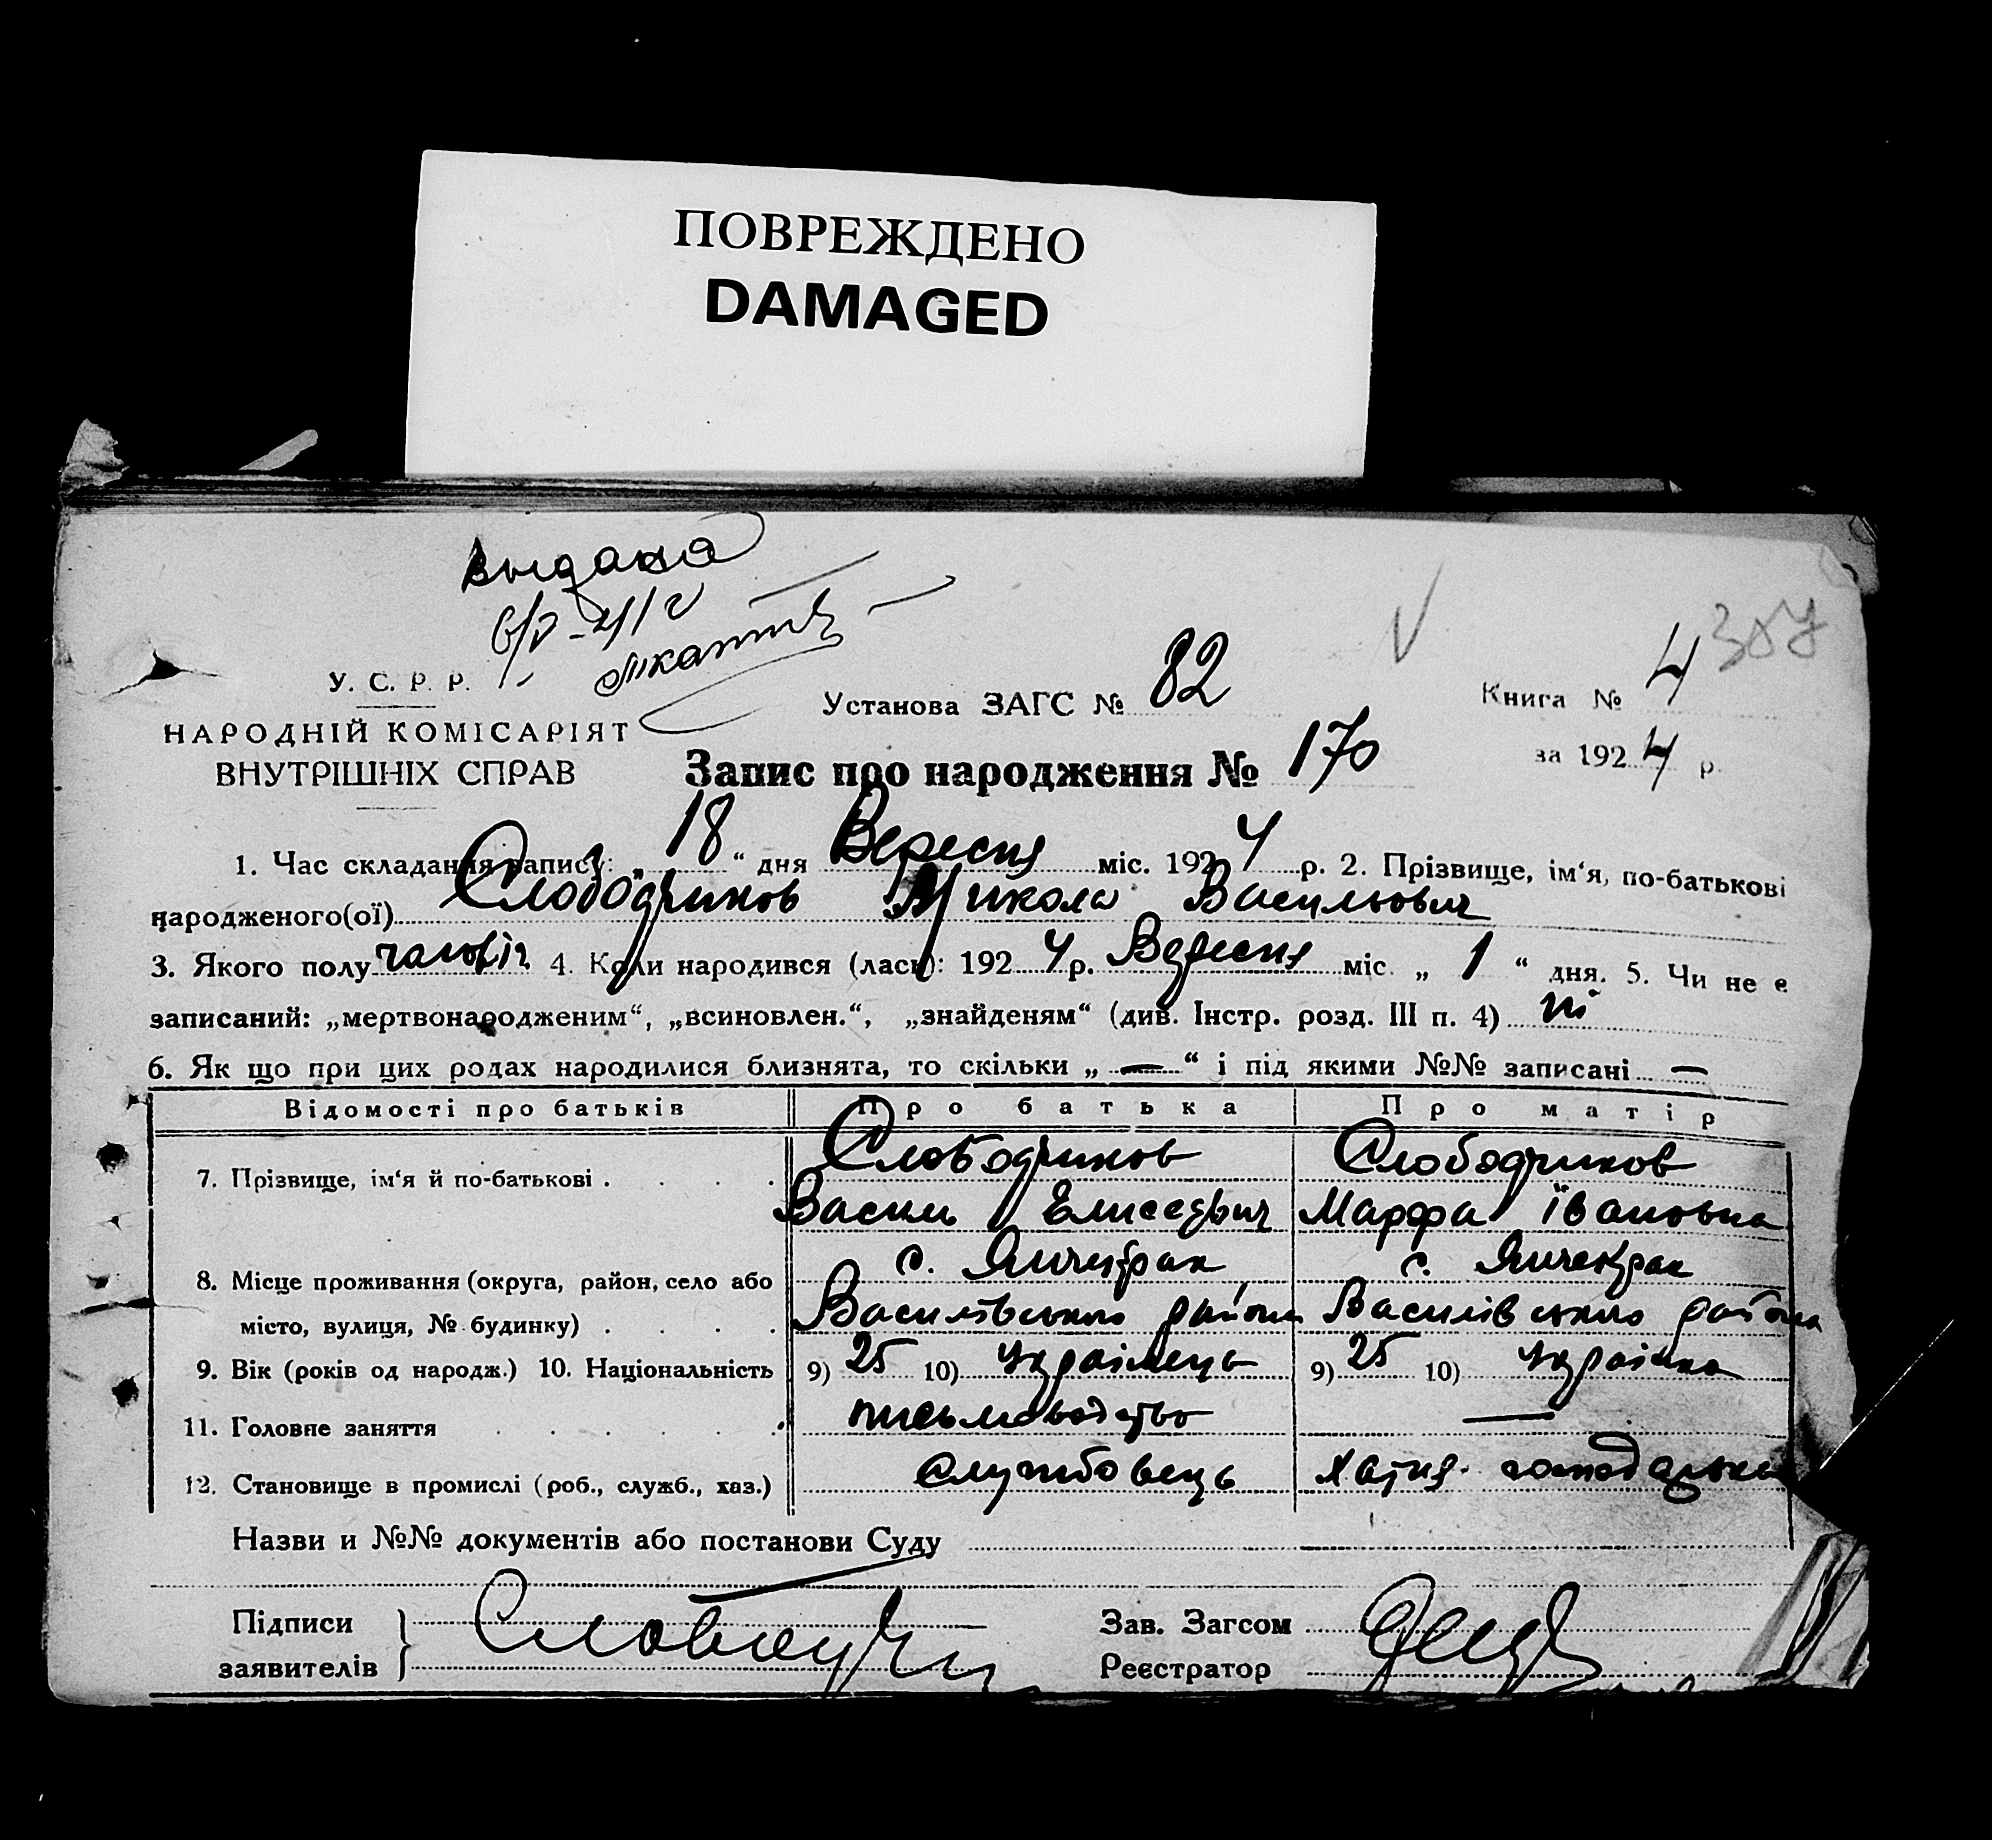 ПОВРЕЖДЕНО
DAMAGED
Выдана
У. С. Р. Р.
Установа ЗАГС № 82
Книга № 4
НАРОДНІЙ КОМІСАРІЯТ
ВНУТРІШНІХ СПРАВ
Запис про народження № 170
за 1924 р.
1. Час складання запису: „ 18 “ дня Вересня міс. 1924 р. 2. Прізвище, ім‘я, по-батькові
народженого(ої) Слободчиков Микола Васильович
3. Якого полу чоловіч. 4. Коли народився (лась): 1924 р. Вересня міс. „ 1 “ дня. 5. Чи не е
записаний: „мертвонародженим“, „всиновлен.“, „знайденям“ (див. Інстр. розд. III п. 4) ні
6. Як що при цих родах народилися близнята, то скільки „ — “ і під якими №№ записані —
Відомості про батьків Про батька Про матір
7. Прізвище, ім‘я й по-батькові . . . . Слободчиков Слободчиков
Василь Елисеєвич Марфа Івановна
с. Янчекрак с. Янчекрак
8. Місце проживання (округа, район, село або
місто, вулиця, № будинку) . . . . Василівського района Василівського района
9. Вік (років од народж.) 10. Національність 9) 25 10) Українець 9) 25 10) Українка
11. Головне заняття . . . . . . письмоводство —
12. Становище в промислі (роб., служб., хаз.) службовець хатня господарька
Назви и №№ документів або постанови Суду
Підписи
заявителів
Зав. Загсом
Реєстратор